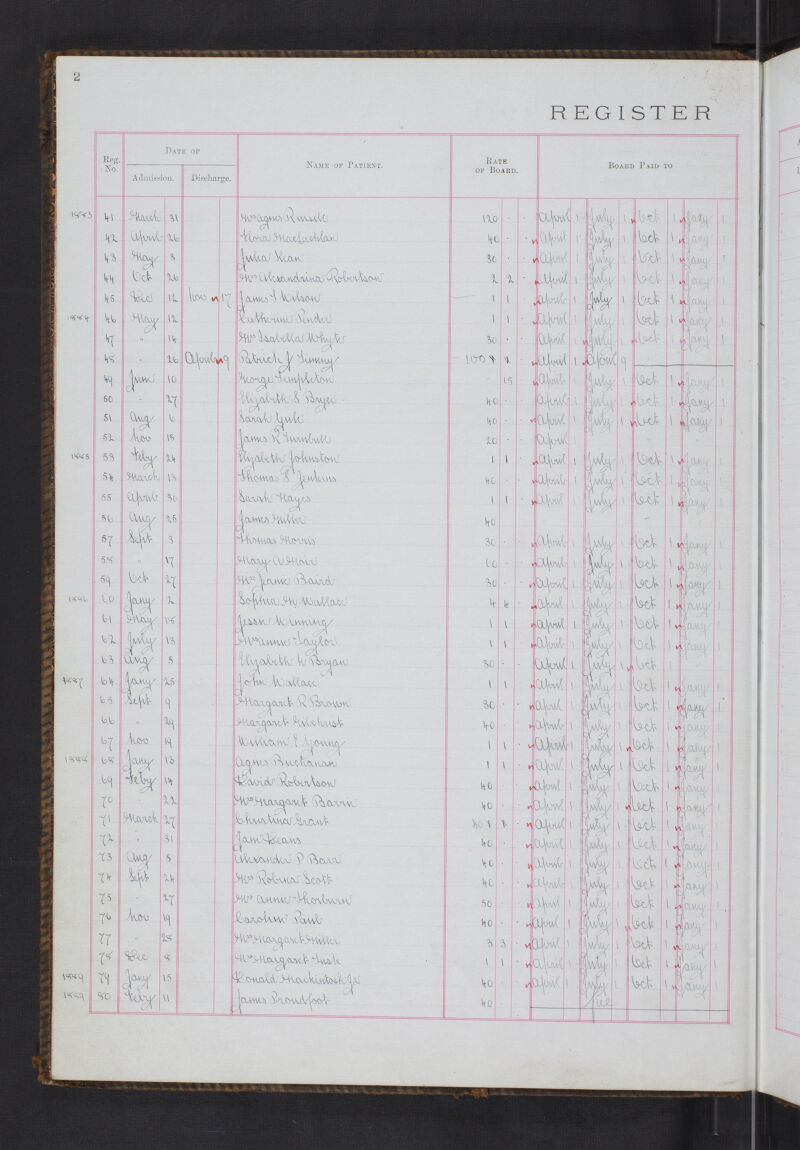 2
REGISTER
Reg. No. DATE OF NAME OF PATIENT. RATE OF BOARD. BOARD PAID TO
Admission. Discharge.
1883 41 March 31 Mrs Agnes Russell 120 · · April 1 July 1 Oct 1 Jany 1
42 April 26 Flora Maclachlan 40 · · April 1 July 1 Oct 1 Jany 1
43 May 3 Julia Kean 30 · · April 1 July 1 Oct 1 Jany 1
44 Oct 26 Mrs Alexandrina Robertson 2 2 · April 1 July 1 Oct 1 Jany 1
45 Dec 12 Nov 17 James T Wilson 1 1 · April 1 July 1 Oct 1 Jany 1
1884 46 May 12 Catherine Pender 1 1 · April 1 July 1 Oct 1 Jany 1
47 " 14 Mrs Isabella Whyte 30 · · April 1 July 1 Oct 1 Jany 1
48 · 26 April 9 Patrick J 100 · · April 1 April 9
49 June 10 George Templeton · 15 · April 1 July 1 Oct 1 Jany 1
50 · 27 Elizabeth S Bryce 40 · · April 1 July 1 Oct 1 Jany 1
51 Aug 6 Sarah 40 · · April 1 July 1 Oct 1 Jany 1
52 Nov 18 James R Turnbull 20 · · April 1
1885 53 Feby 24 Elizabeth Johnston 1 1 · April 1 July 1 Oct 1 Jany 1
54 March 13 Thomas S Jenkins 40 · · April 1 July 1 Oct 1 Jany 1
55 April 30 Sarah Hayes 1 1 · April 1 July 1 Oct 1 Jany 1
56 Aug 25 James Miller 40
57 Sept 3 Thomas Morris 30 · · April 1 July 1 Oct 1 Jany 1
58 " 17 Mary A Moir 60 · · April 1 July 1 Oct 1 Jany 1
59 Oct 27 Mrs Jane Baird 30 · · April 1 July 1 Oct 1 Jany 1
1886 60 Jany 2 Sophia M Wallace 4 4 · April 1 July 1 Oct 1 Jany 1
61 May 18 Jessie Winning 1 1 · April 1 July 1 Oct 1 Jany 1
62 July 13 Mrs Annie Taylor 1 1 · April 1 July 1 Oct 1 Jany 1
63 Aug 5 Elizabeth W Bryan 30 · · April 1 July 1 Oct 1
1887 64 Jany 25 John Wallace 1 1 · April 1 July 1 Oct 1 Jany 1
65 Sept 9 Margaret R Brown 30 · · April 1 July 1 Oct 1 Jany 1
66 " 29 Margaret Gilchrist 40 · · April 1 July 1 Oct 1 Jany 1
67 Nov 19 William E Young 1 1 · April 1 July 1 Oct 1 Jany 1
1888 68 Jany 13 Agnes Buchanan 1 1 · April 1 July 1 Oct 1 Jany 1
69 Feby 14 David Robertson 40 · April 1 July 1 Oct 1 Jany 1
70 · 22 Mrs Margaret Barrie 40 · · April 1 July 1 Oct 1 Jany 1
71 March 27 Christina Grant 40 · · April 1 July 1 Oct 1 Jany 1
72 " 31 Jane Deans 40 · · April 1 July 1 Oct 1 Jany 1
73 Aug 5 Alexander P Barr 40 · · April 1 July 1 Oct 1 Jany 1
74 Sept 24 Mrs Robina Scott 40 · · April 1 July 1 Oct 1 Jany 1
75 · 27 Mrs Annie Thorburn 50 · · April 1 July 1 Oct 1 Jany 1
76 Nov 19 Caroline Paul 40 · · April 1 July 1 Oct 1 Jany 1
77 " 28 Mrs Margaret Miller 3 3 · April 1 July 1 Oct 1 Jany 1
78 Dec 8 Mrs Margaret 1 1 · April 1 July 1 Oct 1 Jany 1
1889 79 Jany 15 Donald Mackintosh Jr 40 · · April 1 July 1 Oct 1 Jany 1
1889 80 Feby 11 James Proudfoot 40 · ·